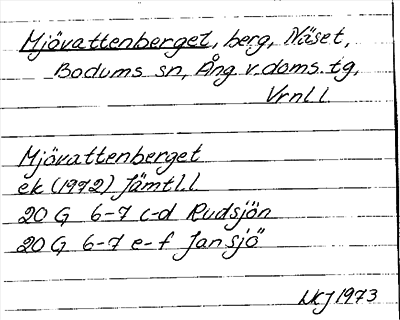 Mjövattenberget, berg, Näset,
Bodums sn, Ång v. doms. tg,
Vrnl l.
Mjövattenberget
ek (1972) Jämtl. l.
20 G 6-7 c-d Rudsjön
20 G 6-7 e-f Jansjö
1973